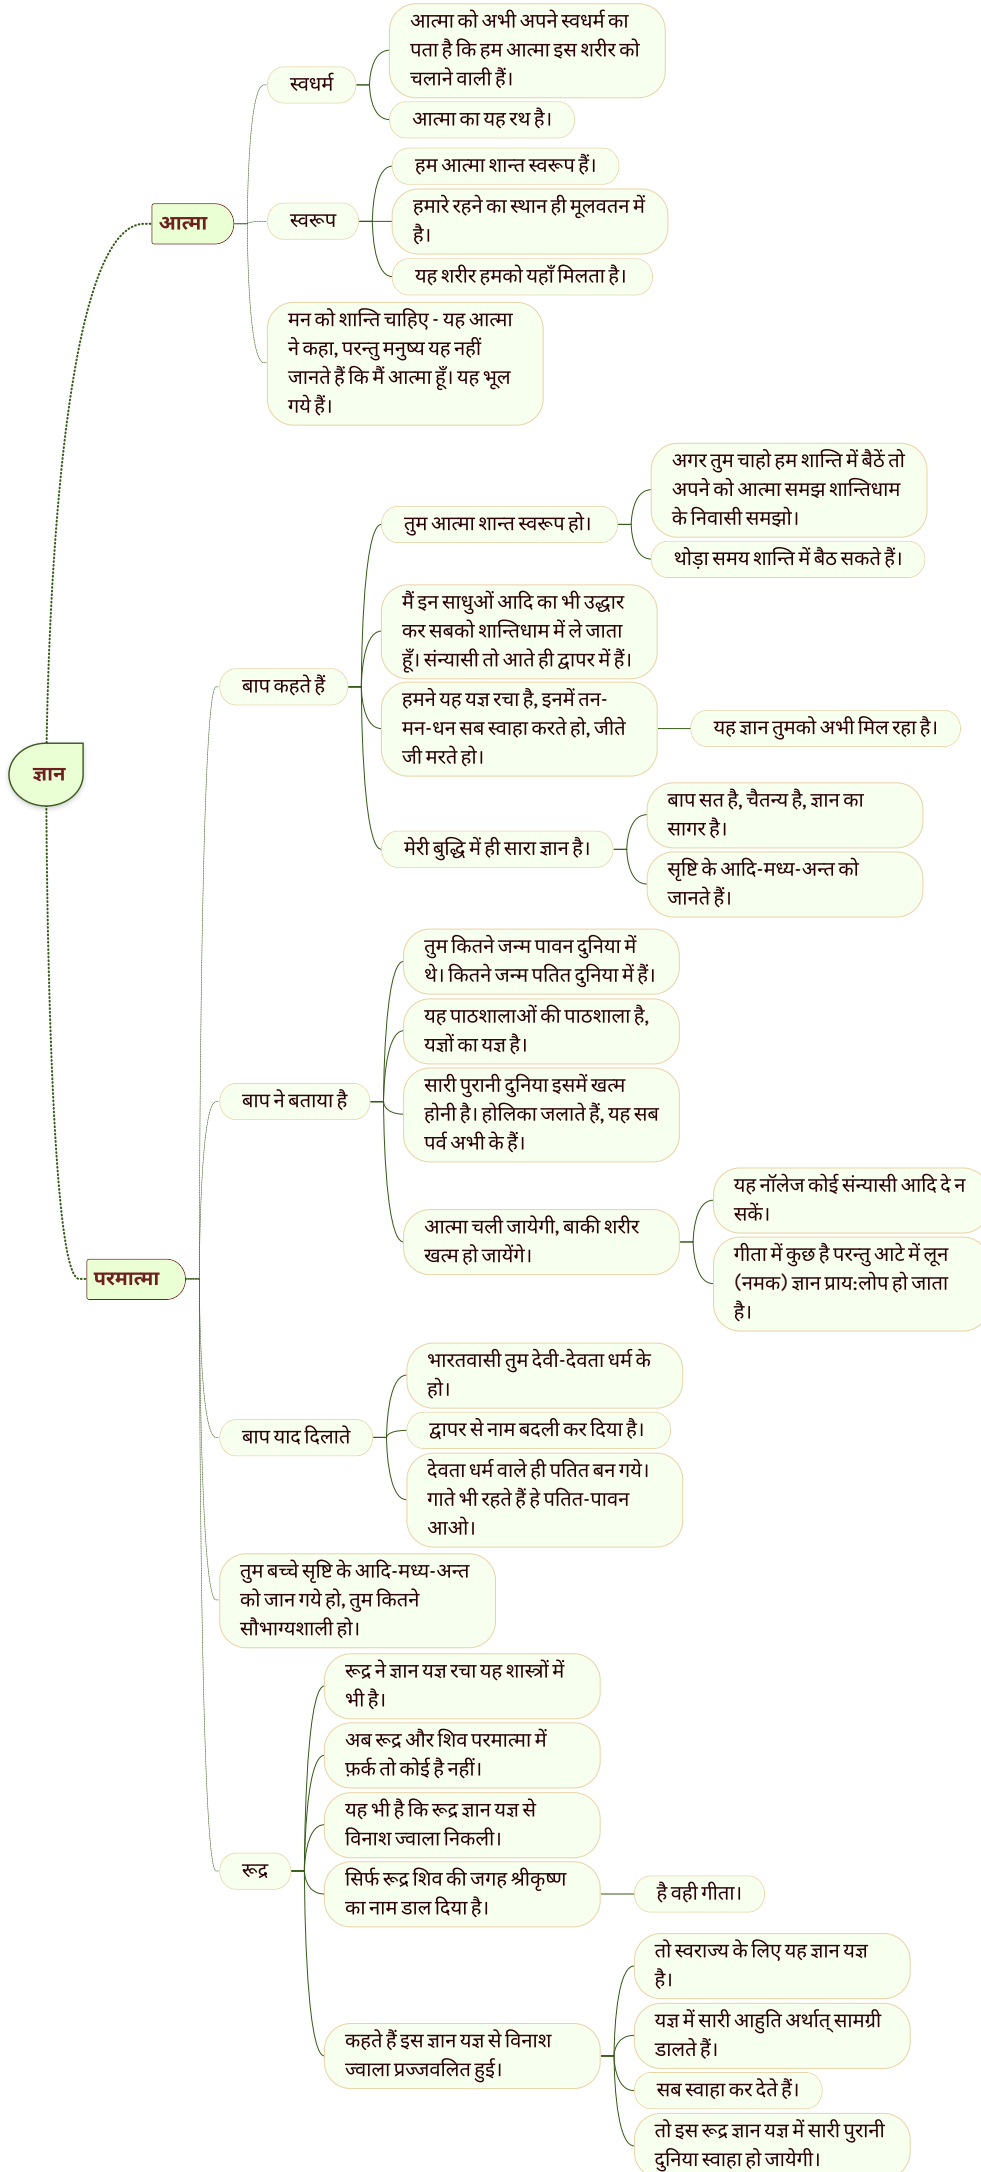 ज्ञान
आत्मा
स्वधर्म
आत्मा को अभी अपने स्वधर्म का
पता है कि हम आत्मा इस शरीर को
चलाने वाली हैं।
आत्मा का यह रथ है।
स्वरूप
हम आत्मा शान्त स्वरूप हैं।
हमारे रहने का स्थान ही मूलवतन में
है।
यह शरीर हमको यहाँ मिलता है।
मन को शान्ति चाहिए - यह आत्मा
ने कहा, परन्तु मनुष्य यह नहीं
जानते हैं कि मैं आत्मा हूँ। यह भूल
गये हैं।
परमात्मा
बाप कहते हैं
तुम आत्मा शान्त स्वरूप हो।
अगर तुम चाहो हम शान्ति में बैठें तो
अपने को आत्मा समझ शान्तिधाम
के निवासी समझो।
थोड़ा समय शान्ति में बैठ सकते हैं।
मैं इन साधुओं आदि का भी उद्धार
कर सबको शान्तिधाम में ले जाता
हूँ। संन्यासी तो आते ही द्वापर में हैं।
हमने यह यज्ञ रचा है, इनमें तन-
मन-धन सब स्वाहा करते हो, जीते
जी मरते हो।
यह ज्ञान तुमको अभी मिल रहा है।
मेरी बुद्धि में ही सारा ज्ञान है।
बाप सत है, चैतन्य है, ज्ञान का
सागर है।
सृष्टि के आदि-मध्य-अन्त को
जानते हैं।
बाप ने बताया है
तुम कितने जन्म पावन दुनिया में
थे। कितने जन्म पतित दुनिया में हैं।
यह पाठशालाओं की पाठशाला है,
यज्ञों का यज्ञ है।
सारी पुरानी दुनिया इसमें खत्म
होनी है। होलिका जलाते हैं, यह सब
पर्व अभी के हैं।
आत्मा चली जायेगी, बाकी शरीर
खत्म हो जायेंगे।
यह नॉलेज कोई संन्यासी आदि दे न
सकें।
गीता में कुछ है परन्तु आटे में लून
(नमक) ज्ञान प्राय:लोप हो जाता
है।
बाप याद दिलाते
भारतवासी तुम देवी-देवता धर्म के
हो।
द्वापर से नाम बदली कर दिया है।
देवता धर्म वाले ही पतित बन गये।
गाते भी रहते हैं हे पतित-पावन
आओ।
तुम बच्चे सृष्टि के आदि-मध्य-अन्त
को जान गये हो, तुम कितने
सौभाग्यशाली हो।
रूद्र
रूद्र ने ज्ञान यज्ञ रचा यह शास्त्रों में
भी है।
अब रूद्र और शिव परमात्मा में
फ़र्क तो कोई है नहीं।
यह भी है कि रूद्र ज्ञान यज्ञ से
विनाश ज्वाला निकली।
सिर्फ रूद्र शिव की जगह श्रीकृष्ण
का नाम डाल दिया है।
है वही गीता।
कहते हैं इस ज्ञान यज्ञ से विनाश
ज्वाला प्रज्जवलित हुई।
तो स्वराज्य के लिए यह ज्ञान यज्ञ
है।
यज्ञ में सारी आहुति अर्थात् सामग्री
डालते हैं।
सब स्वाहा कर देते हैं।
तो इस रूद्र ज्ञान यज्ञ में सारी पुरानी
दुनिया स्वाहा हो जायेगी।